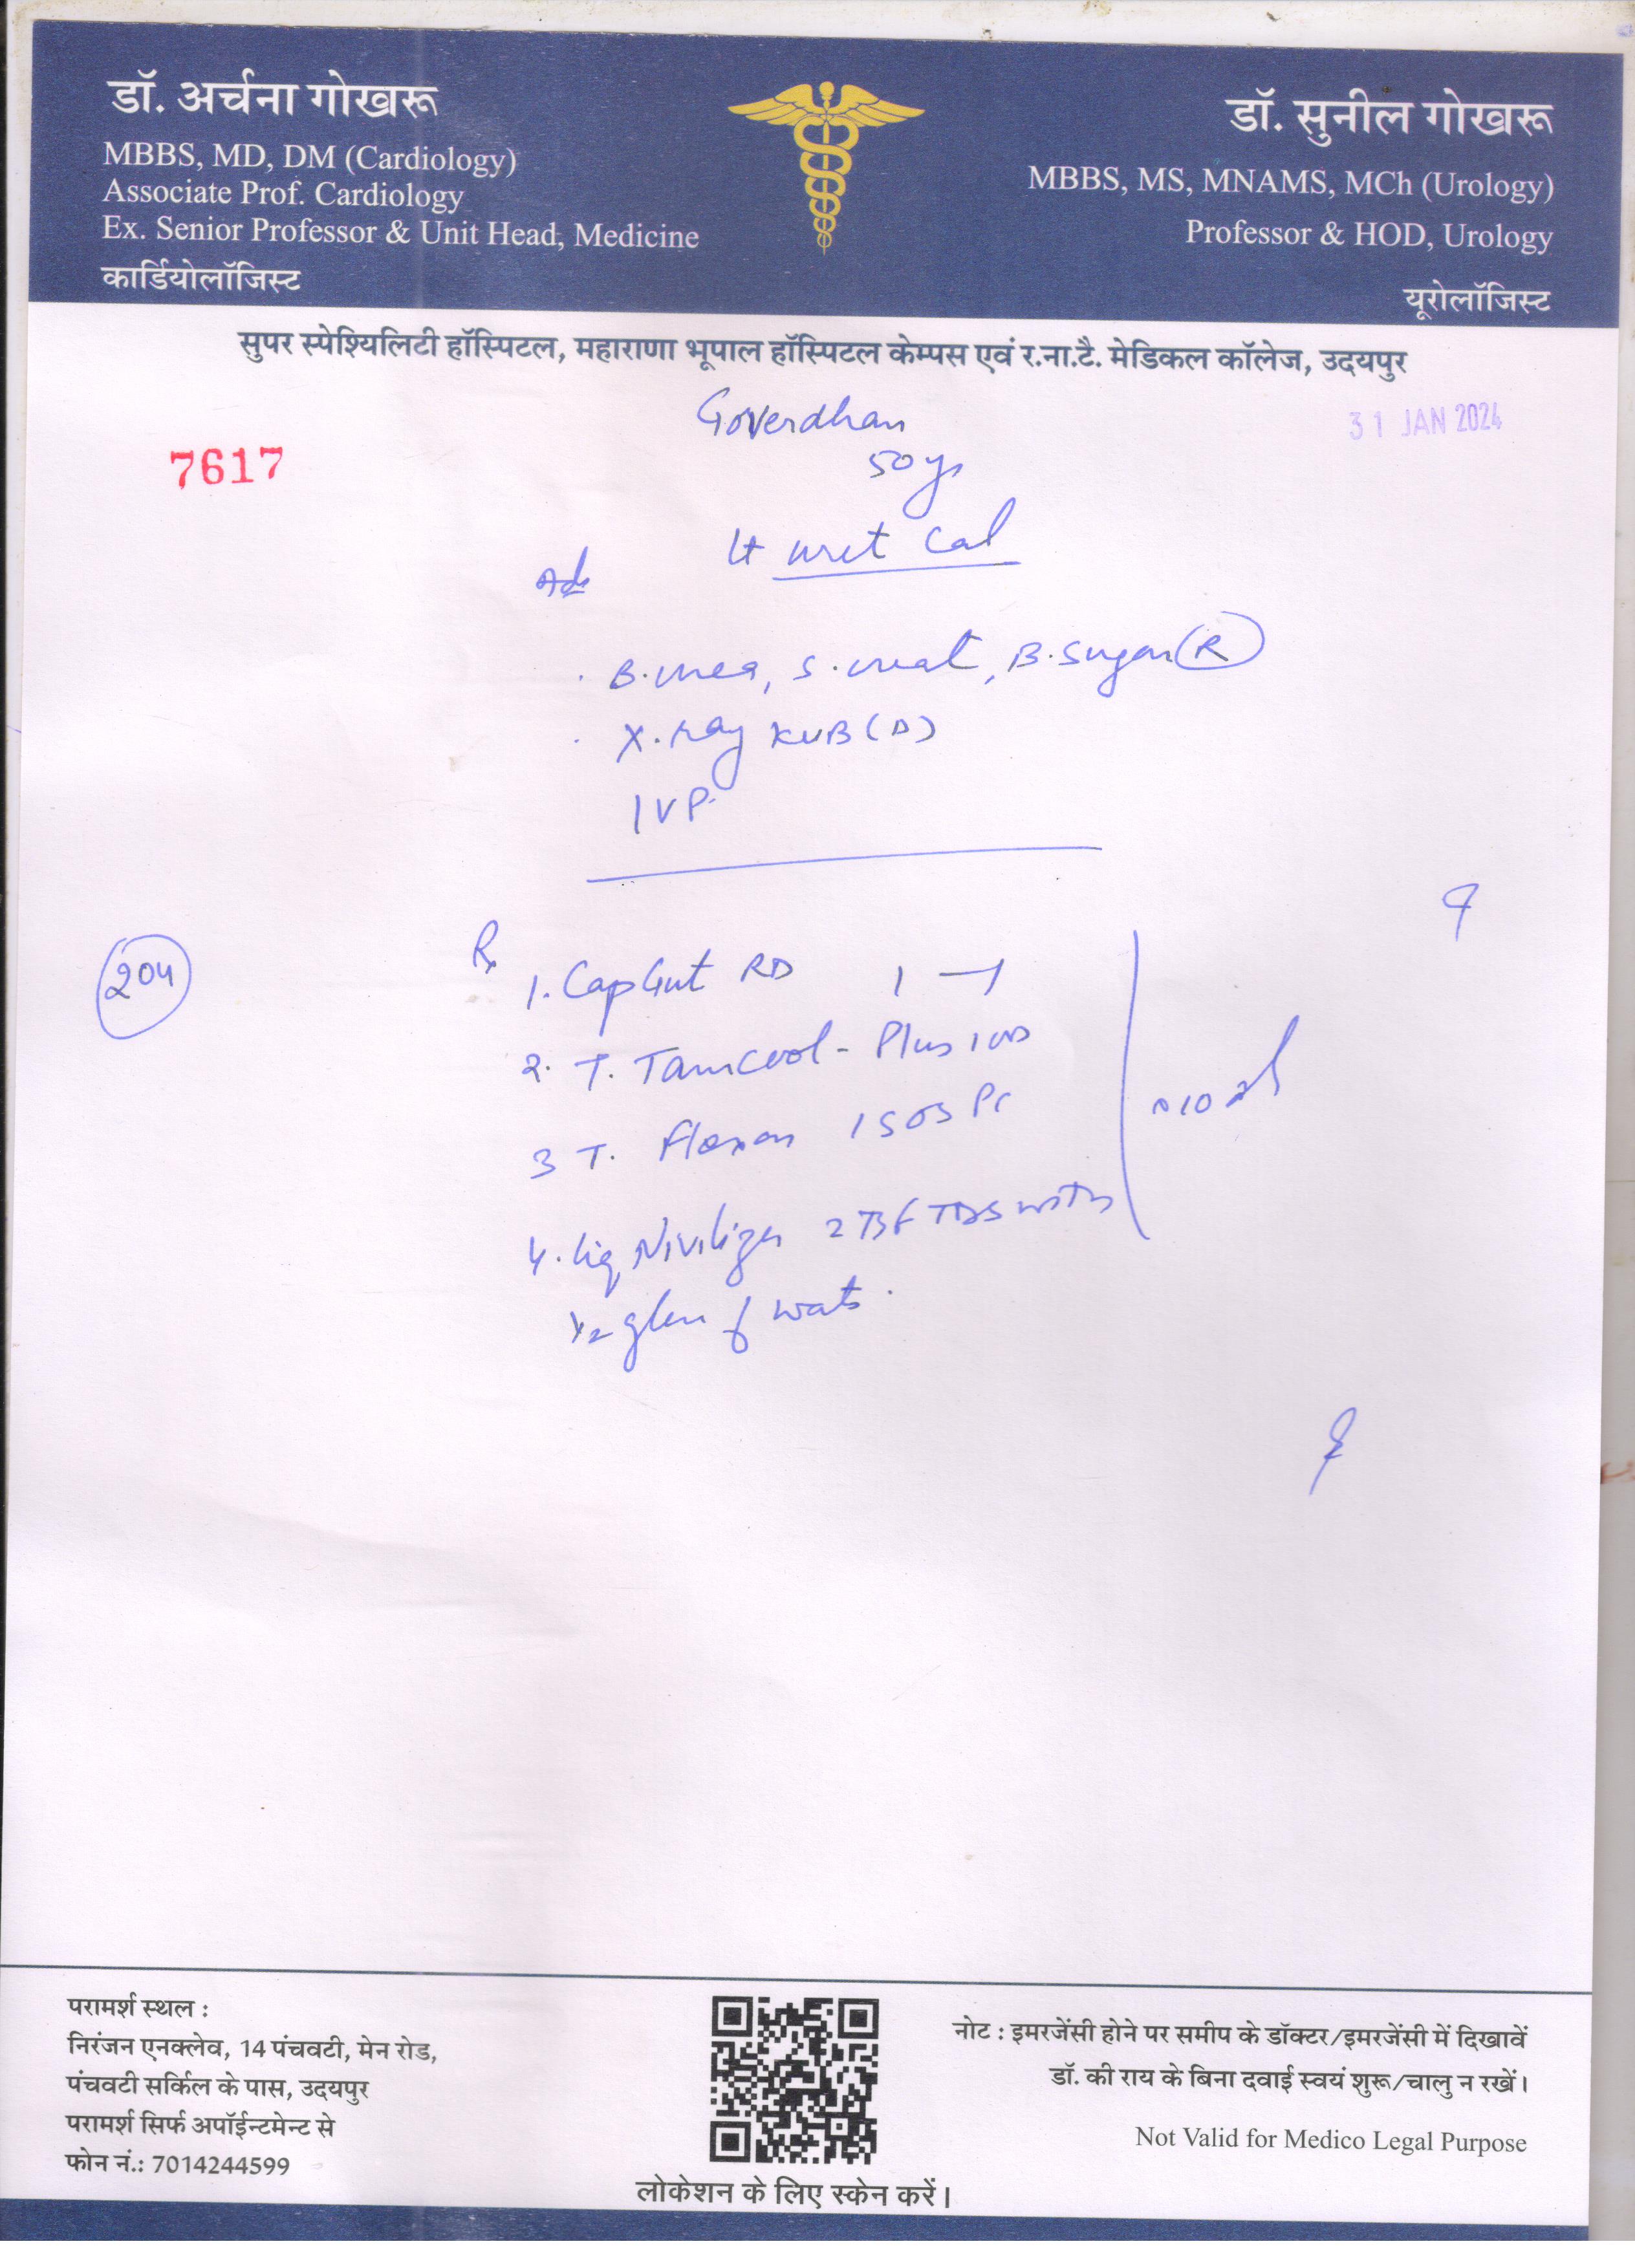 डॉ. अर्चना गोखरू
MBBS, MD, DM (Cardiology)
Associate Prof. Cardiology
Ex. Senior Professor & Unit Head, Medicine
कार्डियोलॉजिस्ट
डॉ. सुनील गोखरू
MBBS, MS, MNAMS, MCh (Urology)
Professor & HOD, Urology
यूरोलॉजिस्ट
सुपर स्पेश्यिलिटी हॉस्पिटल, महाराणा भूपाल हॉस्पिटल केम्पस एवं र.ना.टै. मेडिकल कॉलेज, उदयपुर
Goverdhan
31 JAN 2024
7617
50 ys
Lt uret cal
Ad
. B.urea, S.creat, B.Sugar (R)
. X.ray KUB (D)
IVP.
204
Rx
1. Cap Gut RD 1 — 1
2. T. Tamcool - Plus 1 OD
3 T. Flexon 1 SOS
4. Liq 2 TSF TDS with
1/2 glass of water.
परामर्श स्थल :
निरंजन एनक्लेव, 14 पंचवटी, मेन रोड,
पंचवटी सर्किल के पास, उदयपुर
परामर्श सिर्फ अपॉईन्टमेन्ट से
फोन नं.: 7014244599
लोकेशन के लिए स्केन करें।
नोट : इमरजेंसी होने पर समीप के डॉक्टर/इमरजेंसी में दिखावें
डॉ. की राय के बिना दवाई स्वयं शुरू/चालु न रखें।
Not Valid for Medico Legal Purpose